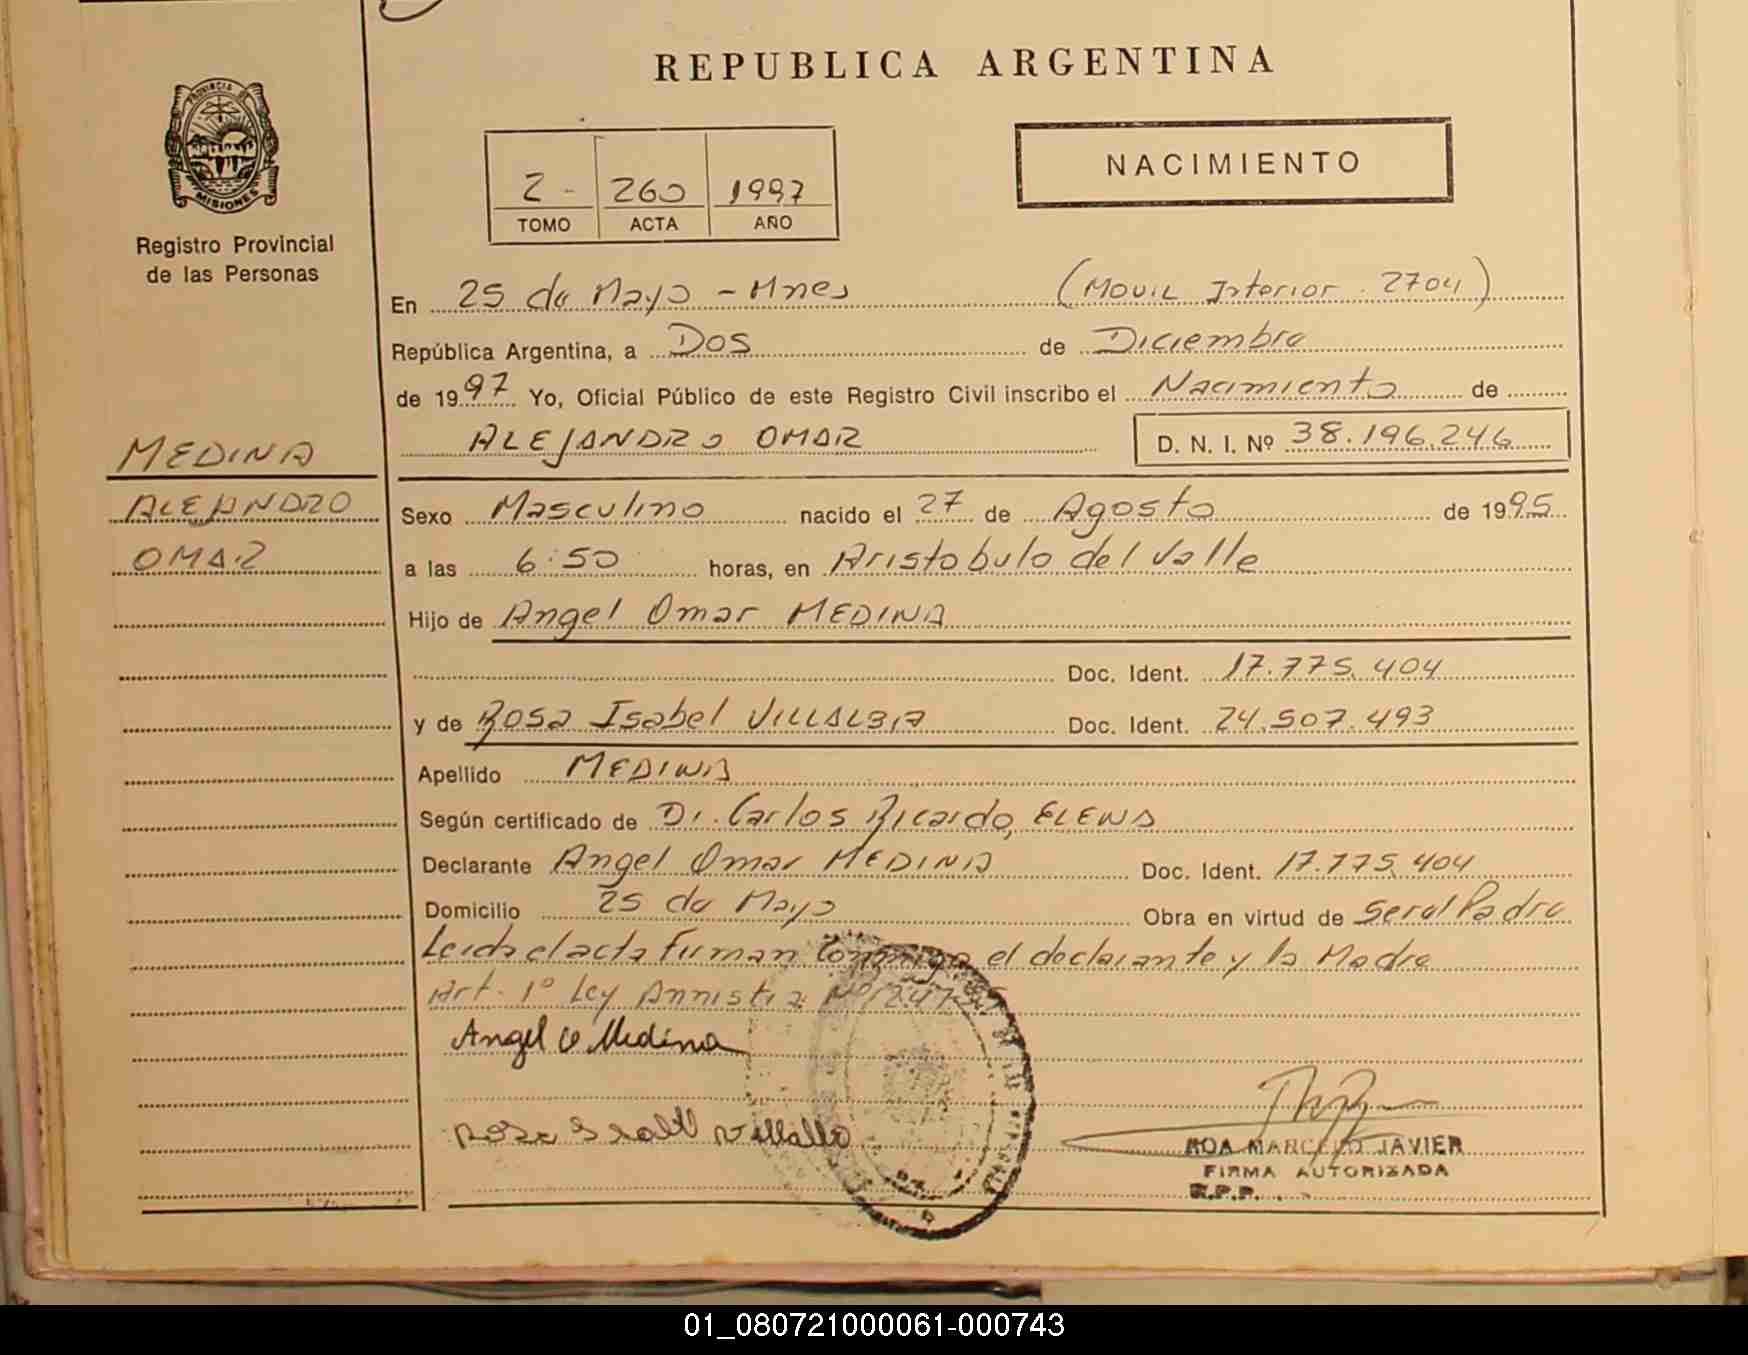 REPUBLICA ARGENTINA
PROVINCIA DE
MISIONES
Registro Provincial
de las Personas
NACIMIENTO
2 - 260 1997
TOMO ACTA AÑO
En 25 de Mayo - Mnes (Movil Interior 2704)
República Argentina, a Dos de Diciembre
de 1997 Yo, Oficial Público de este Registro Civil inscribo el Nacimiento de
ALEJANDRO OMAR D. N. I. Nº 38.196.246
MEDINA
ALEJANDRO
OMAR
Sexo Masculino nacido el 27 de Agosto de 1995
a las 6:50 horas, en Aristobulo del Valle
Hijo de Angel Omar MEDINA
Doc. Ident. 17.775.404
y de Rosa Isabel VILLALBA Doc. Ident. 24.507.493
Apellido MEDINA
Según certificado de Dr. Carlos Ricardo ELENA
Declarante Angel Omar MEDINA Doc. Ident. 17.775.404
Domicilio 25 de Mayo Obra en virtud de Ser el Padre
Leida el acta Firman Conmigo el declarante y la Madre
Art. 1º Ley Annistia Nº
Angel O Medina
Rosa Isabel Villalba
ROA MARCELO JAVIER
FIRMA AUTORIZADA
R.P.P.
01_080721000061-000743